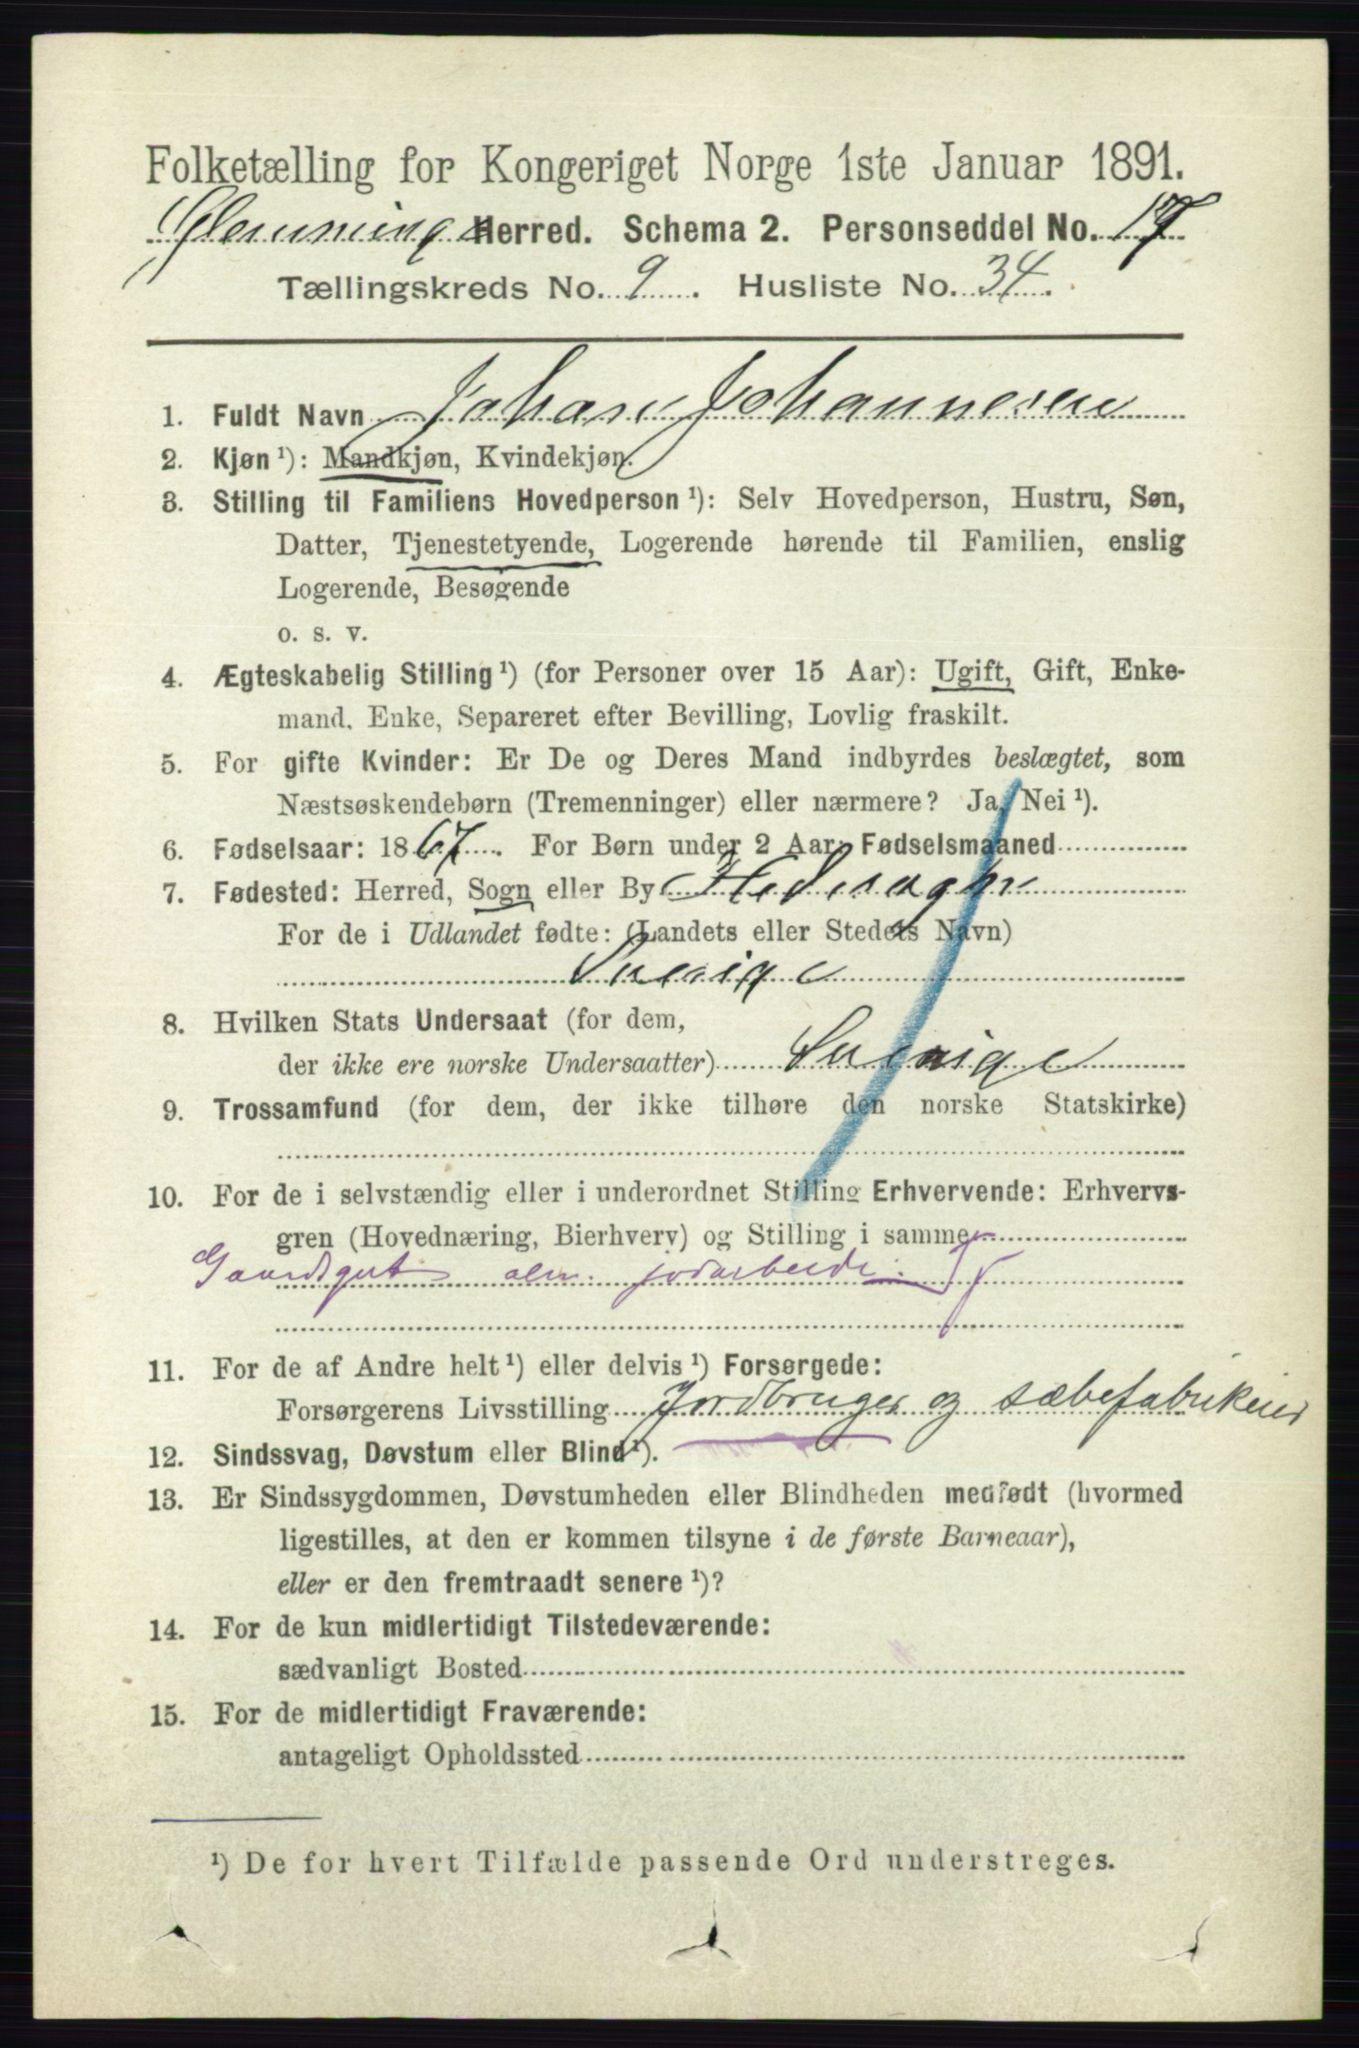 Folketælling for Kongeriget Norge 1ste Januar 1891.
Glemminge Herred. Schema 2. Personseddel No. 17
Tællingskreds No. 9. Husliste No. 34.
1. Fuldt Navn Johan Johannesen
2. Kjøn ¹): Mandkjøn, Kvindekjøn.
3. Stilling til Familiens Hovedperson ¹): Selv Hovedperson, Hustru, Søn,
Datter, Tjenestetyende, Logerende hørende til Familien, enslig
Logerende, Besøgende
o. s. v.
4. Ægteskabelig Stilling ¹) (for Personer over 15 Aar): Ugift, Gift, Enke-
mand, Enke, Separeret efter Bevilling, Lovlig fraskilt.
5. For gifte Kvinder: Er De og Deres Mand indbyrdes beslægtet, som
Næstsøskendebørn (Tremenninger) eller nærmere? Ja, Nei ¹).
6. Fødselsaar: 1867. For Børn under 2 Aar: Fødselsmaaned
7. Fødested: Herred, Sogn eller By
For de i Udlandet fødte: (Landets eller Stedets Navn)
Sverige
8. Hvilken Stats Undersaat (for dem,
der ikke ere norske Undersaatter) Sverige
9. Trossamfund (for dem, der ikke tilhøre den norske Statskirke)
10. For de i selvstændig eller i underordnet Stilling Erhvervende: Erhvervs-
gren (Hovednæring, Bierhverv) og Stilling i samme
Gaardsgut alm. jordarbeide.
11. For de af Andre helt ¹) eller delvis ¹) Forsørgede:
Forsørgerens Livsstilling Jordbruger og sæbefabrikeur
12. Sindssvag, Døvstum eller Blind ¹).
13. Er Sindssygdommen, Døvstumheden eller Blindheden medfødt (hvormed
ligestilles, at den er kommen tilsyne i de første Barneaar),
eller er den fremtraadt senere ¹)?
14. For de kun midlertidigt Tilstedeværende:
sædvanligt Bosted
15. For de midlertidigt Fraværende:
antageligt Opholdssted
¹) De for hvert Tilfælde passende Ord understreges.